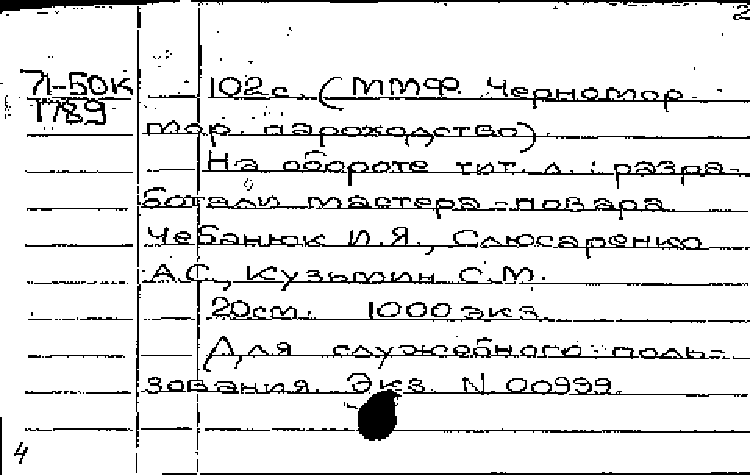 2
71-50к
1789
102с. (ММФ. Черномор.
мор. пароходство)
На обороте тит. л.: разра-
ботали мастера-повара
Чебанюк И.Я., Слюсаренко
А.С., Кузьмин С.М.
20см. 1000 экз.
Для служебного поль-
зования. Экз. N 00999.
4